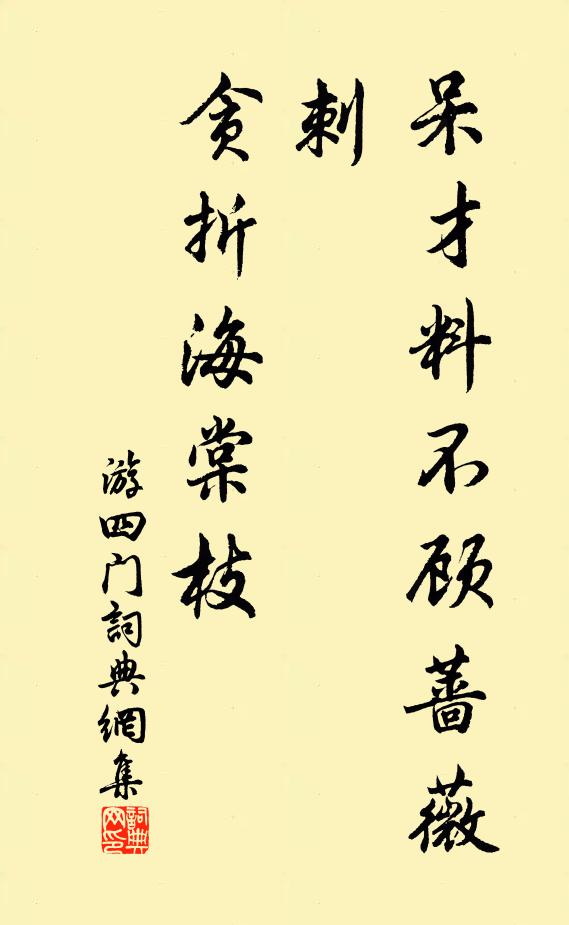 呆才料不顾蔷薇
刺
贪折海棠枝
游四门詞典網集
詞典
网印